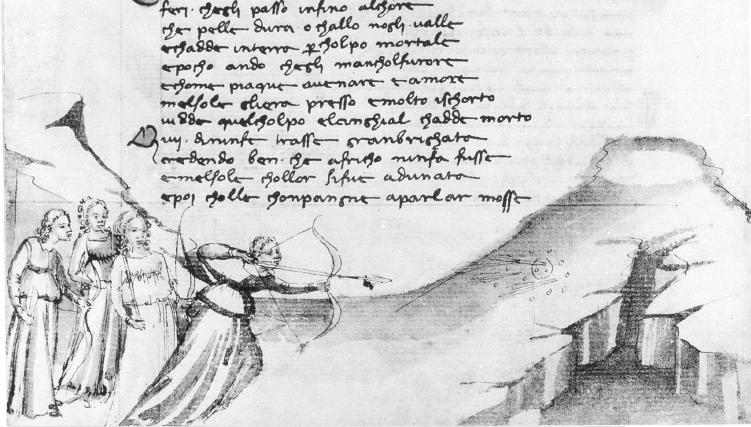 feri . chegli passo infino alchore
che pelle dura o challo nogli . valle
echadde interra ꝑcholpo mortale
epocho ando chegli mancholfurore
echome piaque avenare e amore
melsole gliera presso emolto ischorto
vidde quelcholpo elcinghial chadde morto
Quivi . dininfe trasse granbrighata
credendo ben . che africho ninfa fusse
emelsole chollor sifue adunata
epoi cholle chonpangne aparlar mosse